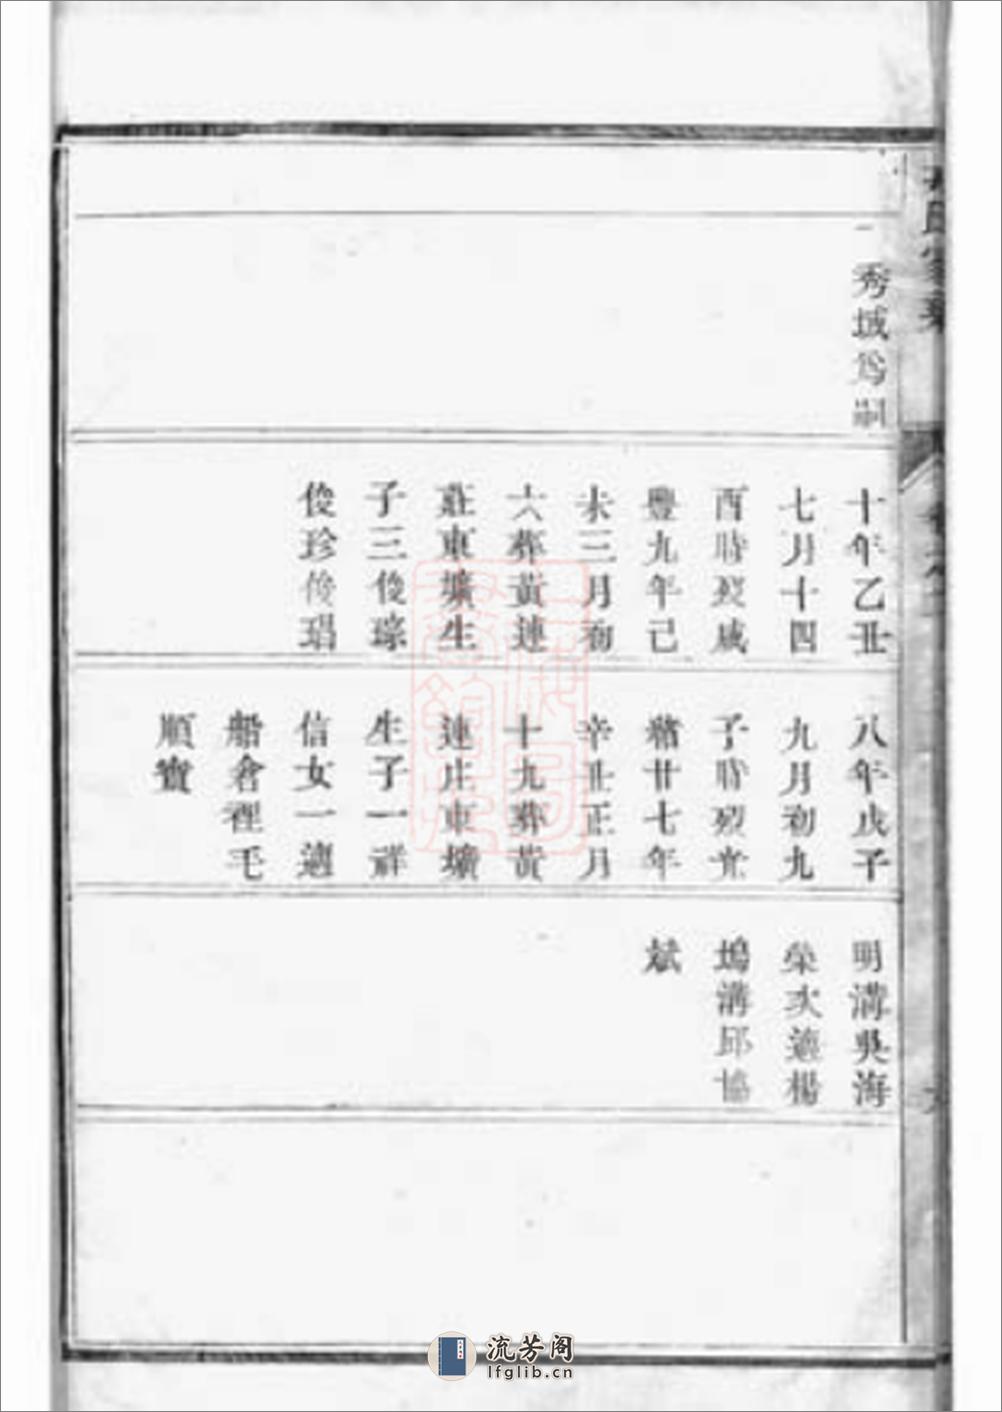 秀城為嗣
十年乙丑
七月十四
酉時歿咸
豐九年己
未三月初
六葬黃連
莊東壙生
子三俊琮
俊珍俊琩
八年戊子
九月初九
子時歿光
緒廿七年
辛丑正月
十九葬黃
連庄東壙
生子一祥
信女一適
船倉裡毛
順寶
明溝吳海
榮次適楊
塢溝邱協
斌
流芳阁
lfglib.cn